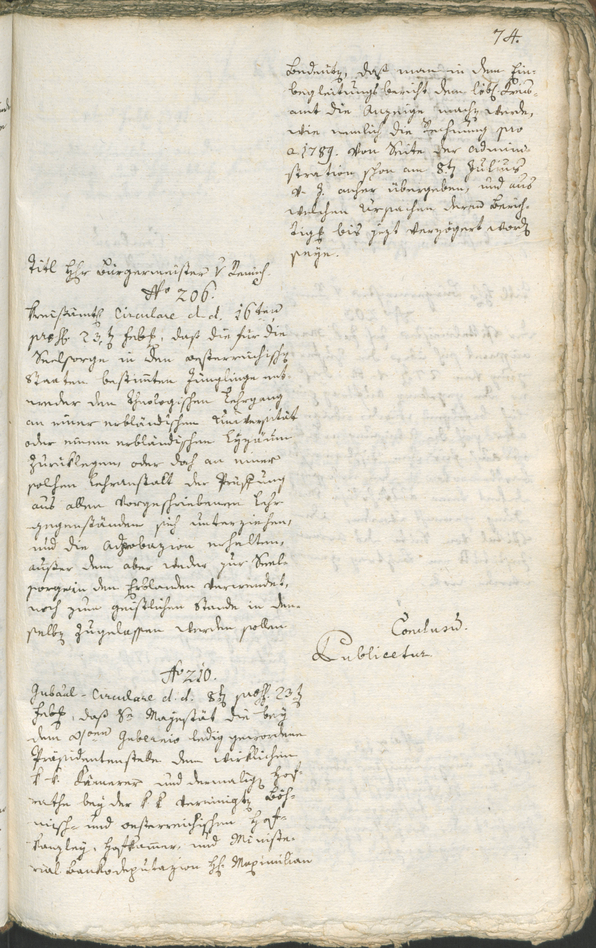 74.
bedeutet, daß man in dem Ein-
begleitungsbericht dem löbl. Kreis-
amt die Anzeige machen werde,
wie nemlich die Rechnung pro
a. 1789. von Seite der Admini-
stration schon am 8tn Julius
v. J. anher übergeben, und aus
welchen Ursachen deren Berich-
tigg bis jezt verzögert word
seye.
Titl Hr Bürgermeister v
No 206.
Kreisamts Circulare d. d. 16ten
praes. 23tn Febr., daß die für die
Seelsorge in den oesterreichischn
Staaten bestimten Jünglinge ent-
weder den theologischen Lehrgang
an einer erbländischen Universität
oder einem erbländischen Lyzäum
zurüklegen, oder doch an einer
solchen Lehranstalt der Prüffung
aus allen vorgeschriebenen Lehr
gegenständen sich unterziehen,
und die Adprobazion erhalten,
ausser dem aber weder zur Seel-
sorge in den Erblanden verwendet,
noch zum geistlichen Stande in den-
selbn zugelassen werden sollen
Conclusũ.
Publicetur
No 210.
Gubaũl-Circulare d. d. 8tn praes. 23tn
Febr., daß Se Majestät die bey
dem Gubernio ledig gewordene
Präsidentenstelle dem wirklichen
k. k. Kämerer und dermalign Hof-
rathe bey der k k vereinigtn Böh-
misch- und oesterreichischen Hof-
kanzley, Hofkamer, und Ministe-
rial Bankodeputazion Hr. Maximilian